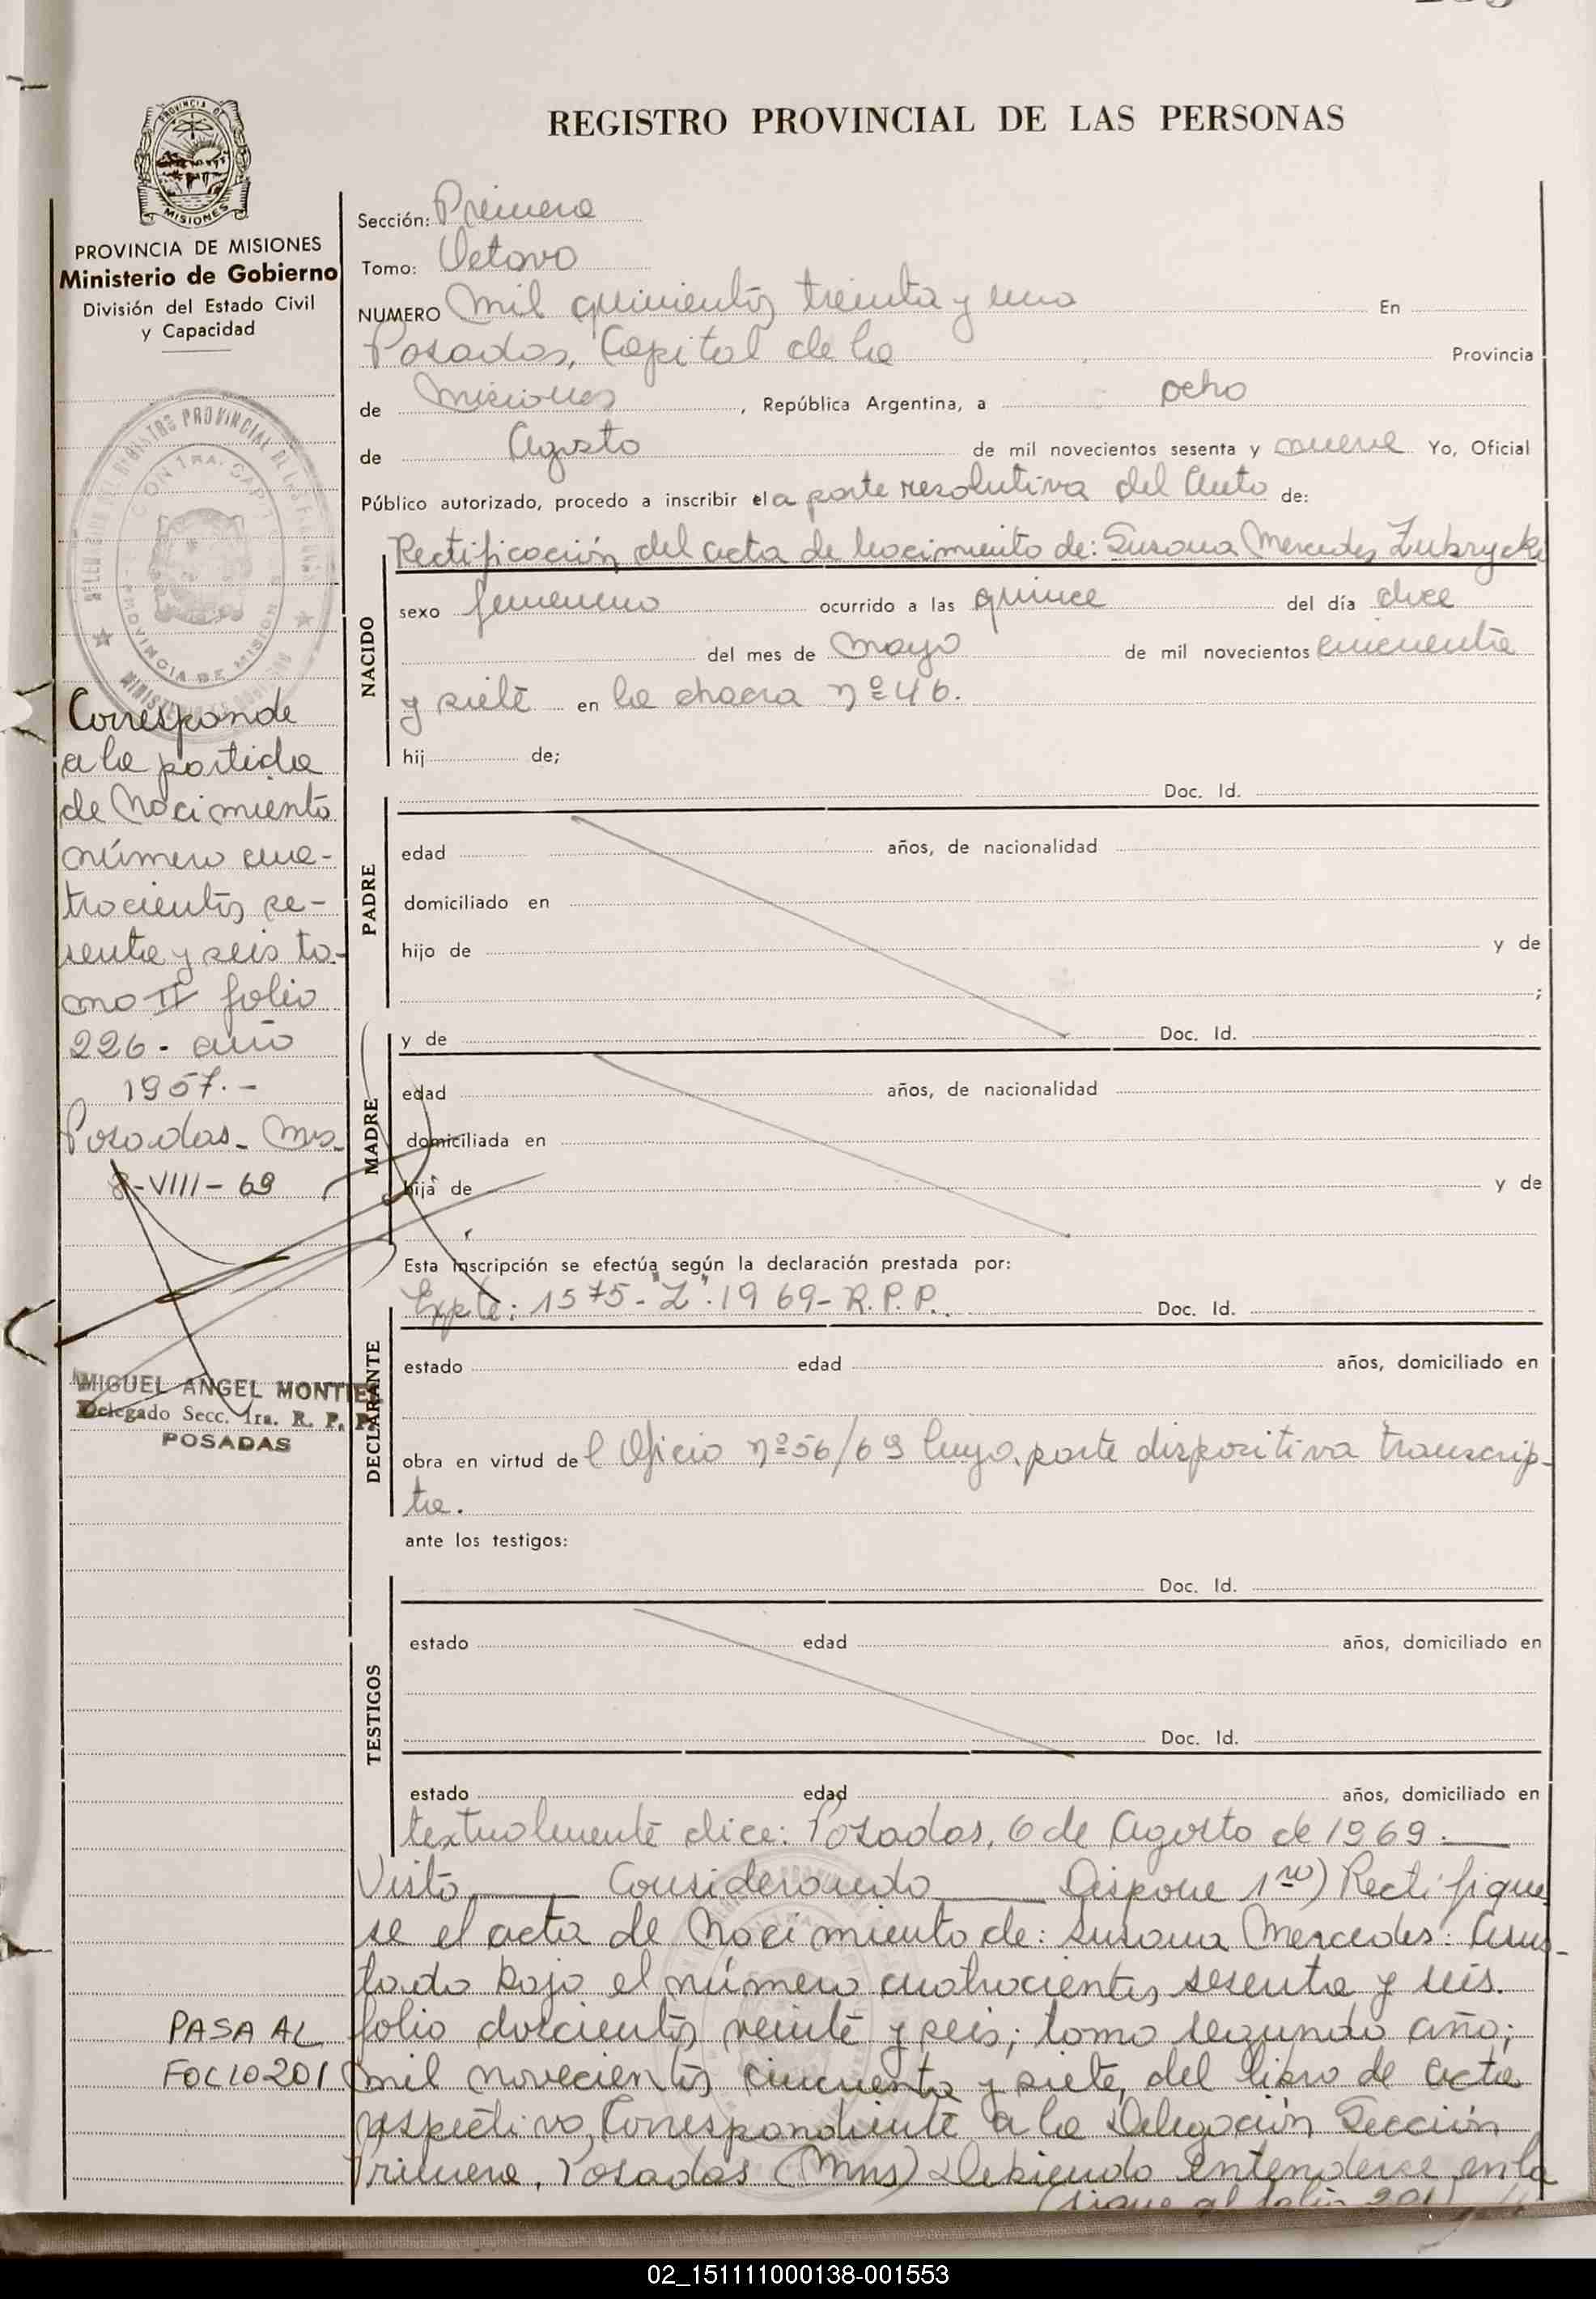 REGISTRO PROVINCIAL DE LAS PERSONAS
PROVINCIA DE MISIONES
Ministerio de Gobierno
División del Estado Civil
y Capacidad
Corresponde
a la partida
de Nacimiento
número cua-
trocientos se-
senta y seis to-
mo II folio
226 - año
1957.-
Posadas - Mns.
8-VIII-69
MIGUEL ANGEL MONTIEL
Delegado Secc. 1ra. R. P. P.
POSADAS
PASA AL
FOLIO 201
Sección: Primera
Tomo: Octavo
NUMERO Mil quinientos treinta y uno En
Posadas, Capital de la Provincia
de Misiones, República Argentina, a ocho
de Agosto de mil novecientos sesenta y nueve Yo, Oficial
Público autorizado, procedo a inscribir el a parte resolutiva del Auto de:
Rectificación del acta de Nacimiento de: Susana Mercedes Zubrycki
NACIDO
sexo femenino ocurrido a las quince del día doce
del mes de Mayo de mil novecientos cincuenta
y siete en la chacra nº 46.
hij de;
Doc. Id.
PADRE
edad años, de nacionalidad
domiciliado en
hijo de y de
;
y de Doc. Id.
MADRE
edad años, de nacionalidad
domiciliada en
hija de y de
Esta inscripción se efectúa según la declaración prestada por:
Expte: 1575-"Z".1969-R.P.P. Doc. Id.
DECLARANTE
estado edad años, domiciliado en
obra en virtud de l Oficio nº 56/69 cuya parte dispositiva transcrip-
ta.
ante los testigos:
Doc. Id.
TESTIGOS
estado edad años, domiciliado en
Doc. Id.
estado edad años, domiciliado en
textualmente dice: Posadas, 6 de Agosto de 1969.
Visto Considerando Dispone 1ro) Rectifique
se el acta de Nacimiento de: Susana Mercedes. Asen-
tado bajo el número cuatrocientos sesenta y seis.
folio doscientos veinte y seis; tomo segundo año;
mil novecientos cincuenta y siete, del libro de acta
respectivo, Correspondiente a la Delegación Sección
Primera, Posadas (Mns) Debiendo entenderse en la
(sigue al folio 201)
02_151111000138-001553